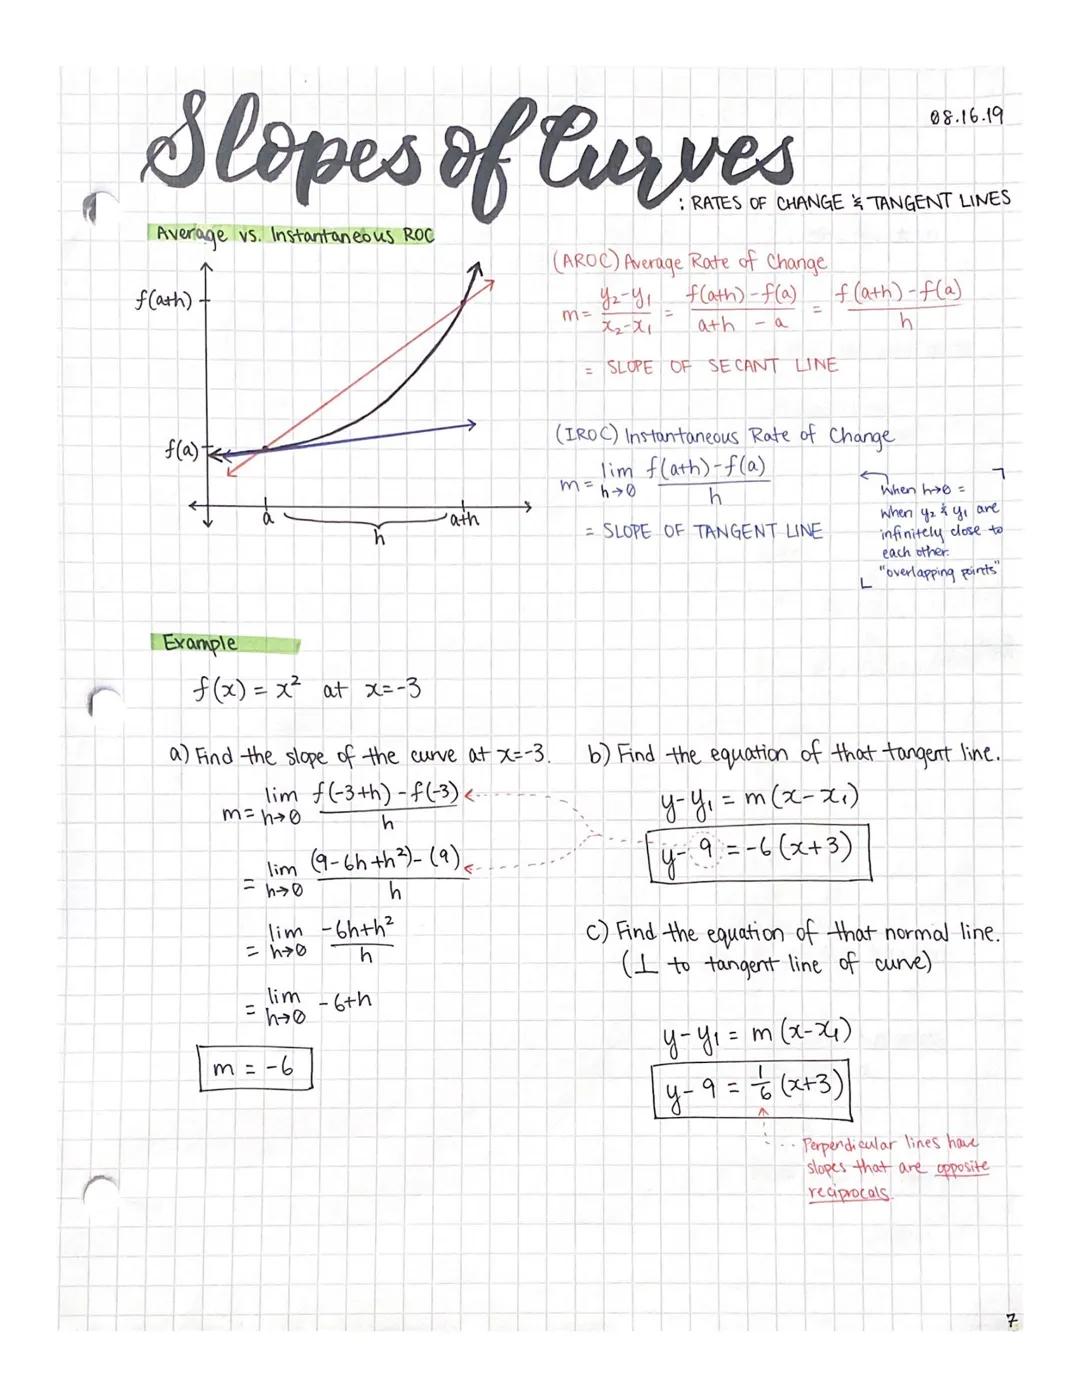 Slopes of Curves
08.16.19
: RATES OF CHANGE & TANGENT LINES
Average vs. Instantaneous ROC
f(a+h)
f(a)
a
a+h
h
(AROC) Average Rate of Change
m = \frac{y₂-y₁}{x₂-x₁} = \frac{f(a+h)-f(a)}{a+h - a} = \frac{f(a+h)-f(a)}{h}
= SLOPE OF SECANT LINE
(IROC) Instantaneous Rate of Change
m = \lim_{h→0} \frac{f(a+h)-f(a)}{h}
= SLOPE OF TANGENT LINE
When h→0 =
when y₂ & y₁ are
infinitely close to
each other.
"overlapping points"
Example
f(x) = x² at x=-3
a) Find the slope of the curve at x=-3.
m = \lim_{h→0} \frac{f(-3+h)-f(-3)}{h}
= \lim_{h→0} \frac{(9-6h+h²)-(9)}{h}
= \lim_{h→0} \frac{-6h+h²}{h}
= \lim_{h→0} -6+h
m = -6
b) Find the equation of that tangent line.
y-y₁ = m(x-x₁)
y-9 = -6(x+3)
c) Find the equation of that normal line.
(⊥ to tangent line of curve)
y-y₁ = m(x-x₁)
y-9 = \frac{1}{6}(x+3)
Perpendicular lines have
slopes that are opposite
reciprocals.
7